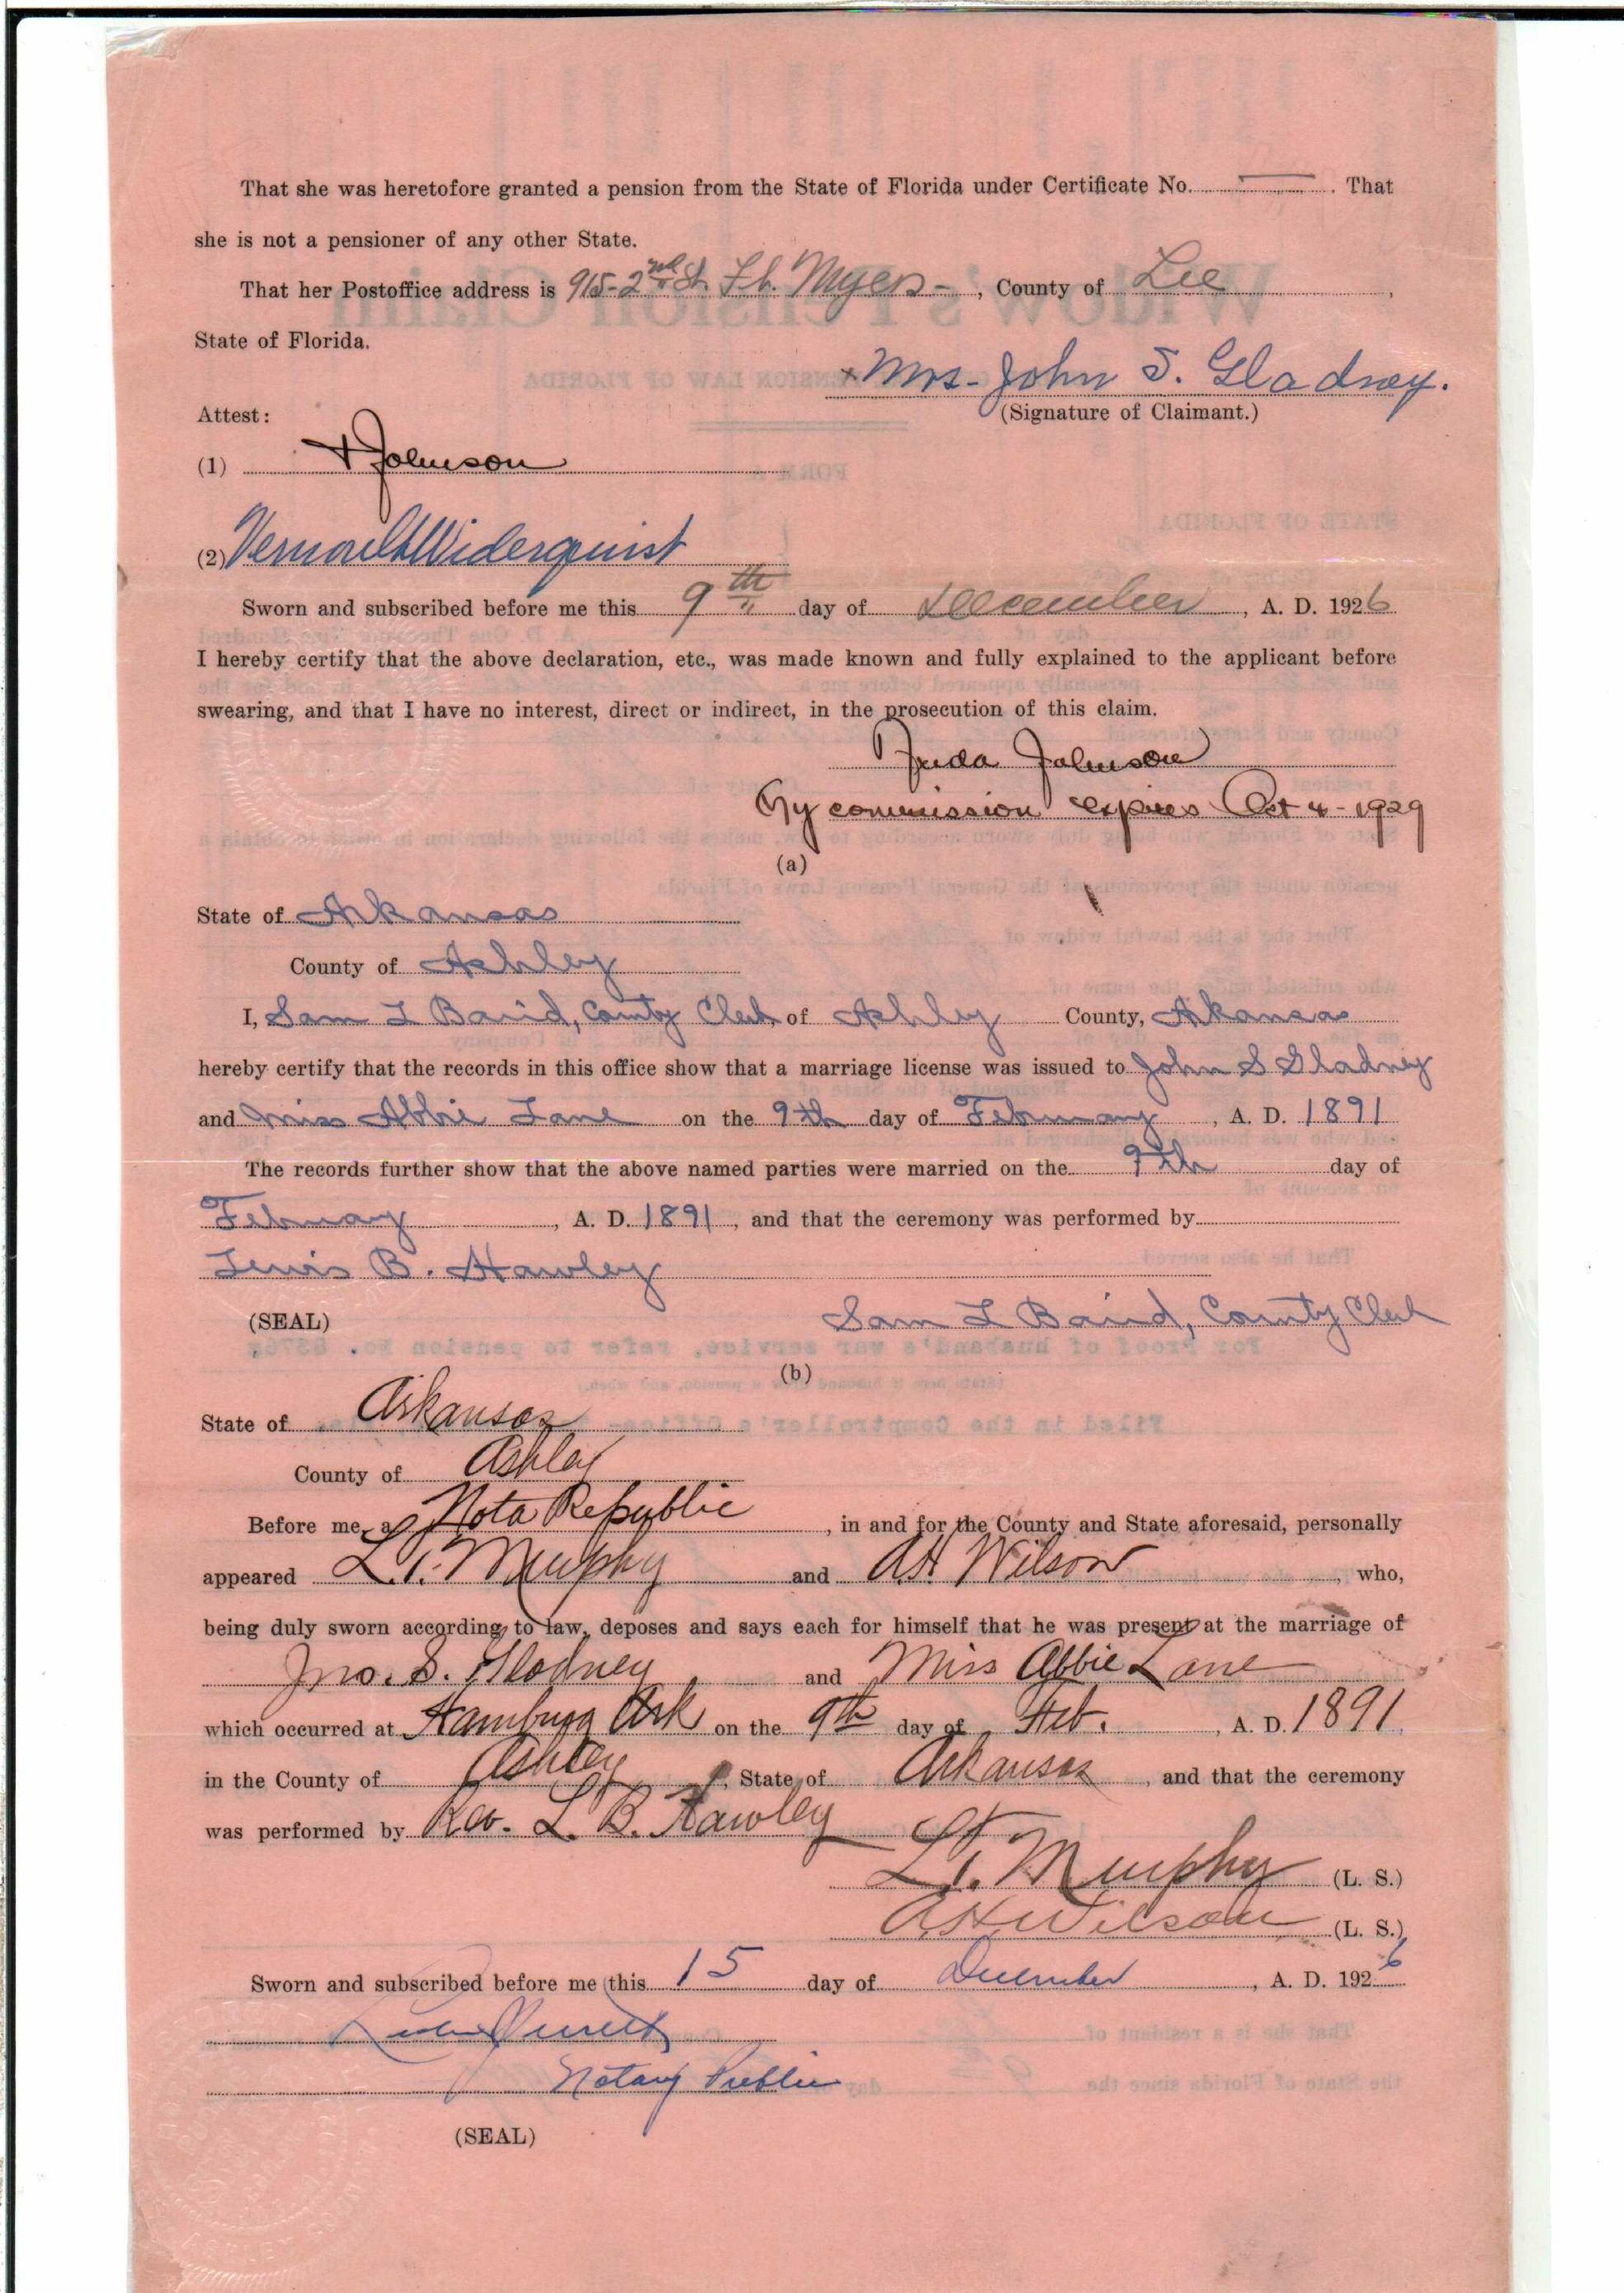 That she was heretofore granted a pension from the State of Florida under Certificate No. —. That
she is not a pensioner of any other State.
That her Postoffice address is 915-2nd St. Ft. Myers-, County of Lee,
State of Florida.
x Mrs- John S. Gladney.
Attest: (Signature of Claimant.)
(1) Johnson
(2) Widerquist
Sworn and subscribed before me this 9th day of December, A. D. 1926
I hereby certify that the above declaration, etc., was made known and fully explained to the applicant before
swearing, and that I have no interest, direct or indirect, in the prosecution of this claim.
Johnson
My commission expires Oct 4-1929
(a)
State of Arkansas
County of Ashley
I, Sam L Baird, County Clerk of Ashley County, Arkansas
hereby certify that the records in this office show that a marriage license was issued to John S Gladney
and Miss Abbie Lane on the 9th day of February, A. D. 1891
The records further show that the above named parties were married on the 9th day of
February, A. D. 1891, and that the ceremony was performed by
Lewis B. Hawley
(SEAL) Sam L Baird, County Clerk
(b)
State of Arkansas
County of Ashley
Before me, a Nota Republic, in and for the County and State aforesaid, personally
appeared L.T. Murphy and A.H. Wilson, who,
being duly sworn according to law, deposes and says each for himself that he was present at the marriage of
Jno. S. Gladney and Miss Abbie Lane
which occurred at Hamburg Ark on the 9th day of Feb., A. D. 1891,
in the County of Ashley, State of Arkansas, and that the ceremony
was performed by Rev. L. B. Hawley
L.T. Murphy (L. S.)
A.H. Wilson (L. S.)
Sworn and subscribed before me this 15 day of December, A. D. 1926
Notary Public
(SEAL)